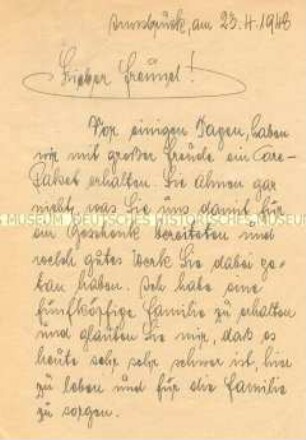 Innsbruck, am 23.4.1948
Lieber Freund!
Vor einigen Tagen, haben
wir mit großer Freude ein Care-
Paket erhalten. Sie ahnen gar
nicht, was Sie uns damit für
MUSEUM DEUTSCHES HISTORISCHES MUSEUM
ein Geschenk bereiteten und
welch gutes Werk Sie dabei ge-
tan haben. Ich habe eine
fünfköpfige Familie zu erhalten
und glauben Sie mir, daß es
heute sehr sehr schwer ist, hier
zu leben und für die Familie
zu sorgen.